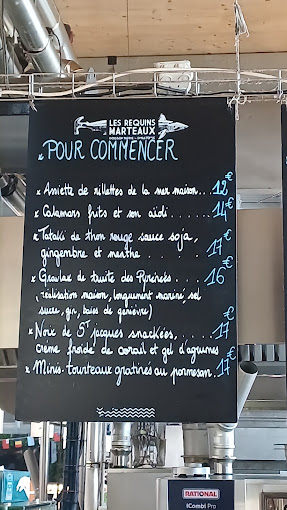 LES REQUINS
MARTEAUX
x POUR COMMENCER
x Assiette de rillettes de la mer maison... 12€
x Calamars frits et son aïoli ....... 14€
x Tataki de thon rouge sauce soja,
gingembre et menthe.... 17€
x Gravlax de truite des Pyrénées.... 16€
(réalisation maison, longuement mariné, sel
sucre, gin, baies de genièvre)
x Noix de St jacques snackées, ..... 17€
crème froide de corail et gel d'agrumes
x Minis. tourteaux gratinés au parmesan. 17€
RATIONAL
iCombi Pro